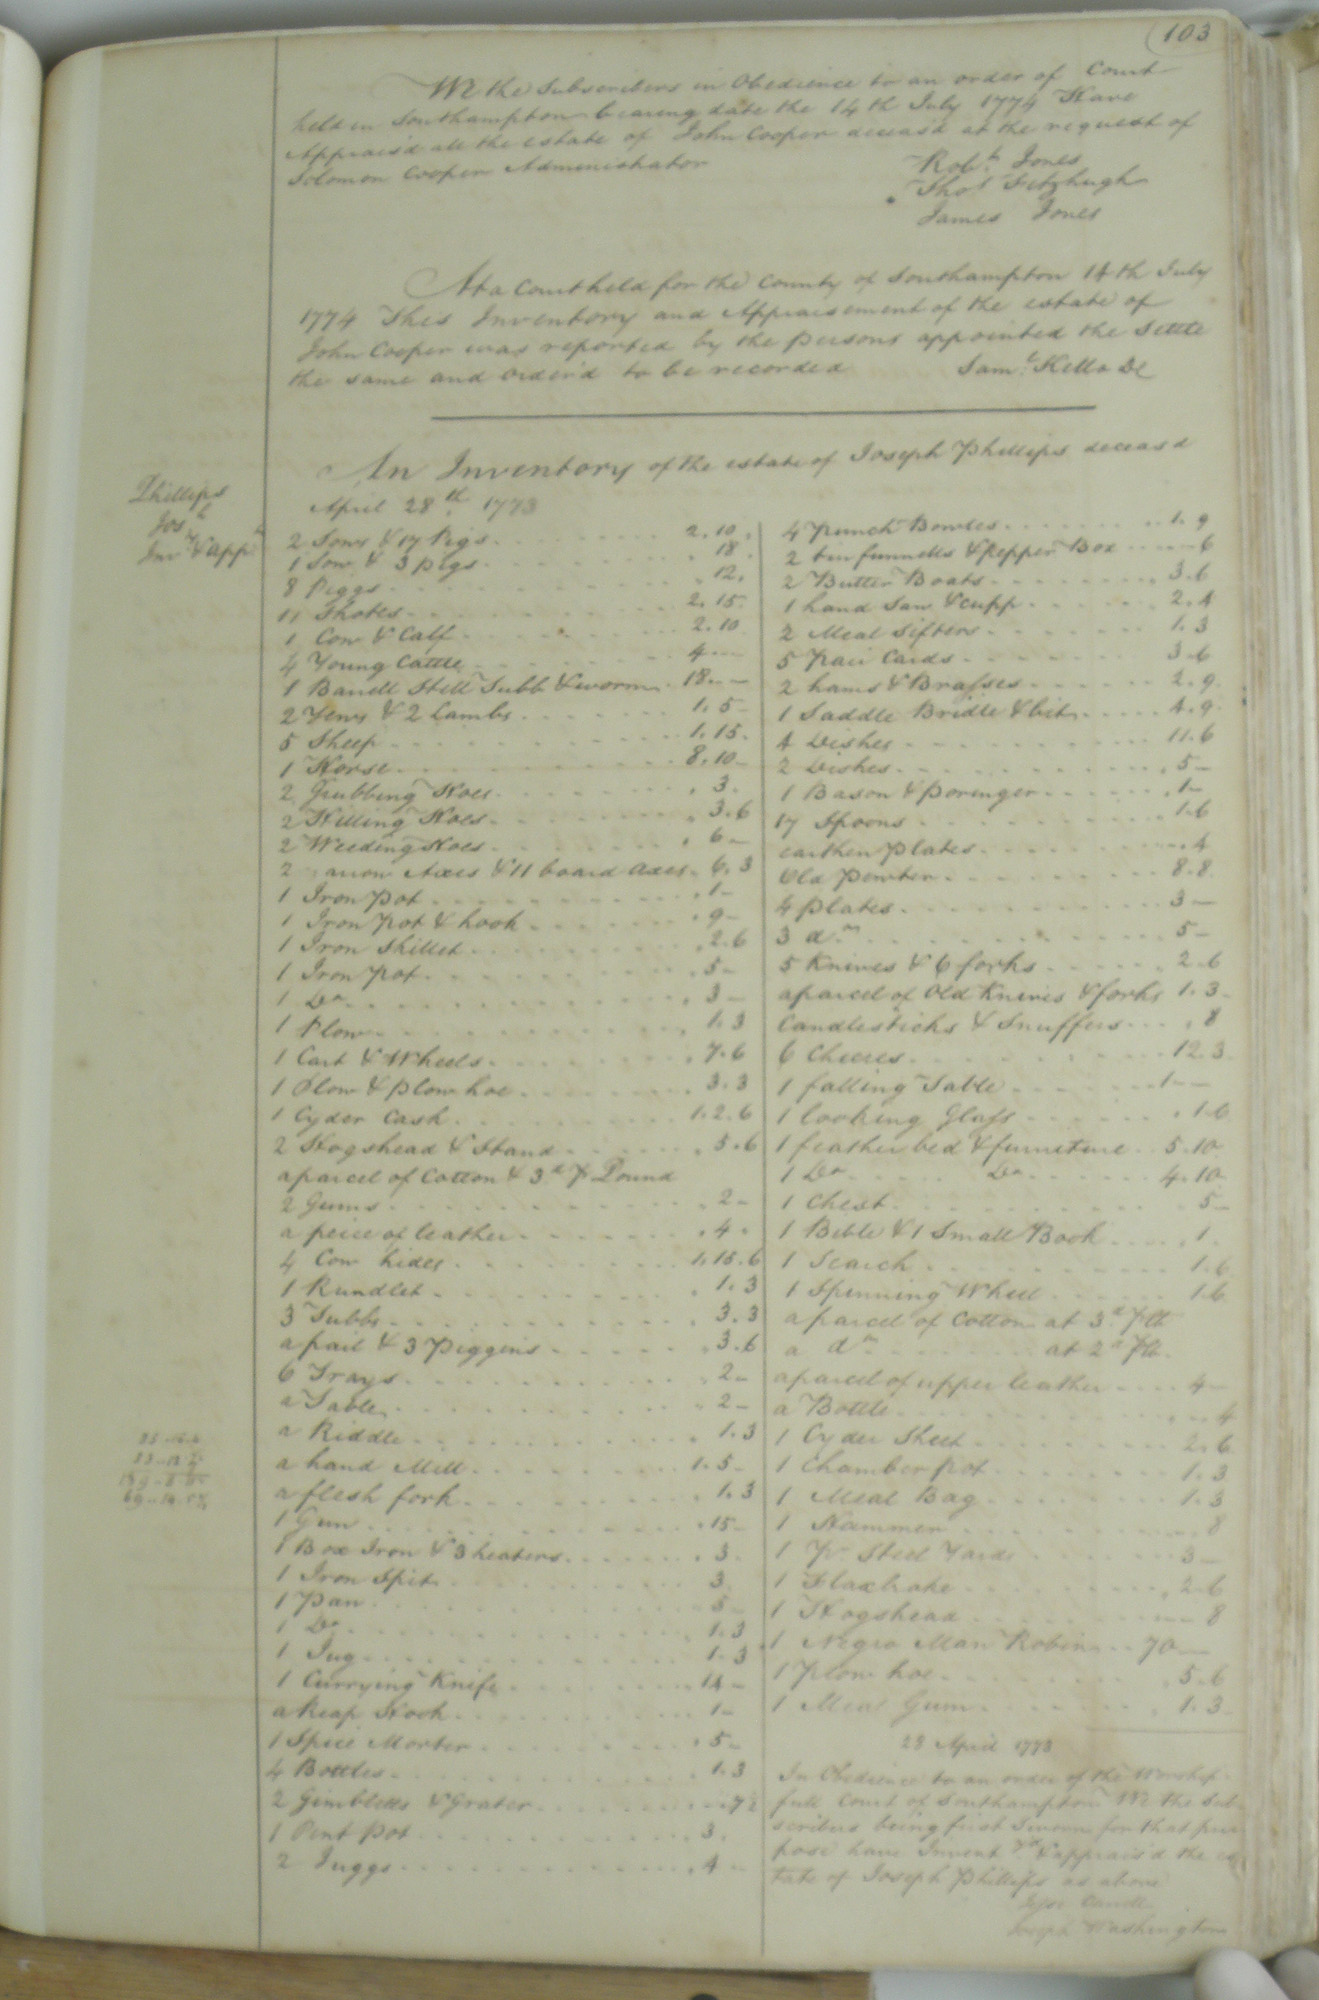 103
We the Subscribers in Obedience to an order of Court
held in Southampton bearing date the 14th July 1774 Have
Appraisd all the estate of John Cooper deceas'd at the request of
Solomon Cooper Administrator
Robt. Jones
Thos Fitzhugh
James Jones
At a Court held for the County of Southampton 14th July
1774 This Inventory and Appraisement of the estate of
John Cooper was reported by the persons appointed the Settle
the same and Order'd to be recorded Saml. Kello DC
An Inventory of the estate of Joseph Phillips deceasd
April 28th. 1773
Phillips
Josh
Invy & Appt
2 Sows & 17 Pigs 2.10.
1 Sow & 3 pigs 18.
8 Piggs 12.
11 Shotes 2.15.
1 Cow & Calf 2.10
4 Young Cattle 4
1 Barrell Still Tubb & worm 18
2 Yews & 2 Lambs 1.5-
5 Sheep 1.15.
1 Horse 8.10-
2 Grubbing Hoes 3.
2 Hilling Hoes 3.6
2 Weeding Hoes 6-
2 narrow Axes & 11 board Axes 6.3
1 Iron pot 1-
1 Iron Pot & hook 9-
1 Iron Skillet 2.6
1 Iron pot 5-
1 Do 3-
1 Plow 1.3
1 Cart & Wheels 7.6
1 Plow & plow hoe 3.3
1 Cyder Cask 1.2.6
2 Hogshead & Stand 5.6
a parcel of Cotton & 3d p Pound
2 Gums 2-
a peice of leather 4.
4 Cow hides 1.15.6
1 Rundlet 1.3
3 Tubbs 3.3
a pail & 3 Piggins 3.6
6 Trays 2-
a Table 2-
a Riddle 1.3
a hand Mill 1.5-
a flesh fork 1.3
1 Gun 15-
1 Box Iron & 3 heaters 3.
1 Iron Spit 3.
1 Pan 5-
1 Do 1.3
1 Jug 1.3
1 Currying Knife 14-
a Reap Hook 1-
1 Spice Morter 5-
4 Bottles 1.3
2 Gimbletts & Grater 7½
1 Pint Pot 3.
2 Juggs 4-
4 Punch Bowles 1.9
2 tin funnells & Pepper Box 6
2 Butter Boats 3.6
1 hand Saw & cupp 2.4
2 Meal Sifters 1.3
5 Pair Cards 3-6
2 hams & Brasses 2.9.
1 Saddle Bridle & bit 4.9.
4 Dishes 11.6
2 Dishes 5-
1 Bason & porenger 1-
17 Spoons 1.6
earthen plates 4
Old Pewter 8.8.
4 plates 3-
3 do 5-
5 Knives & 6 forks 2.6
a parcel of Old Knives & forks 1.3.
Candlesticks & Snuffers 8
6 Cheeres 12.3
1 falling Table 1
1 looking Glass 1.6
1 feather bed & furniture 5.10
1 Do Do 4.10
1 Chest 5-
1 Bible & 1 Small Book 1.
1 Search 1.6
1 Spinning Wheel 1.6
a parcel of Cotton at 3d p lb
a do at 2d p lb
a parcel of upper leather 4-
a Bottle 4
1 Cyder Sheet 2.6
1 Chamber pot 1.3
1 Meal Bag 1.3
1 Hammer 8
1 pr Steel Yards 3-
1 Flaxbrake 2.6
1 Hogshead 8
1 Negro Man Robin 70
1 plow hoe 5.6
1 Meal Gum 1.3
28 April 1773
In Obedience to an order of the Worship-
full Court of Southampton We the Sub-
scribers being first Sworn for that pur
pose have Invent.d & appraisd the es
tate of Joseph Phillips as above
Joseph Washington